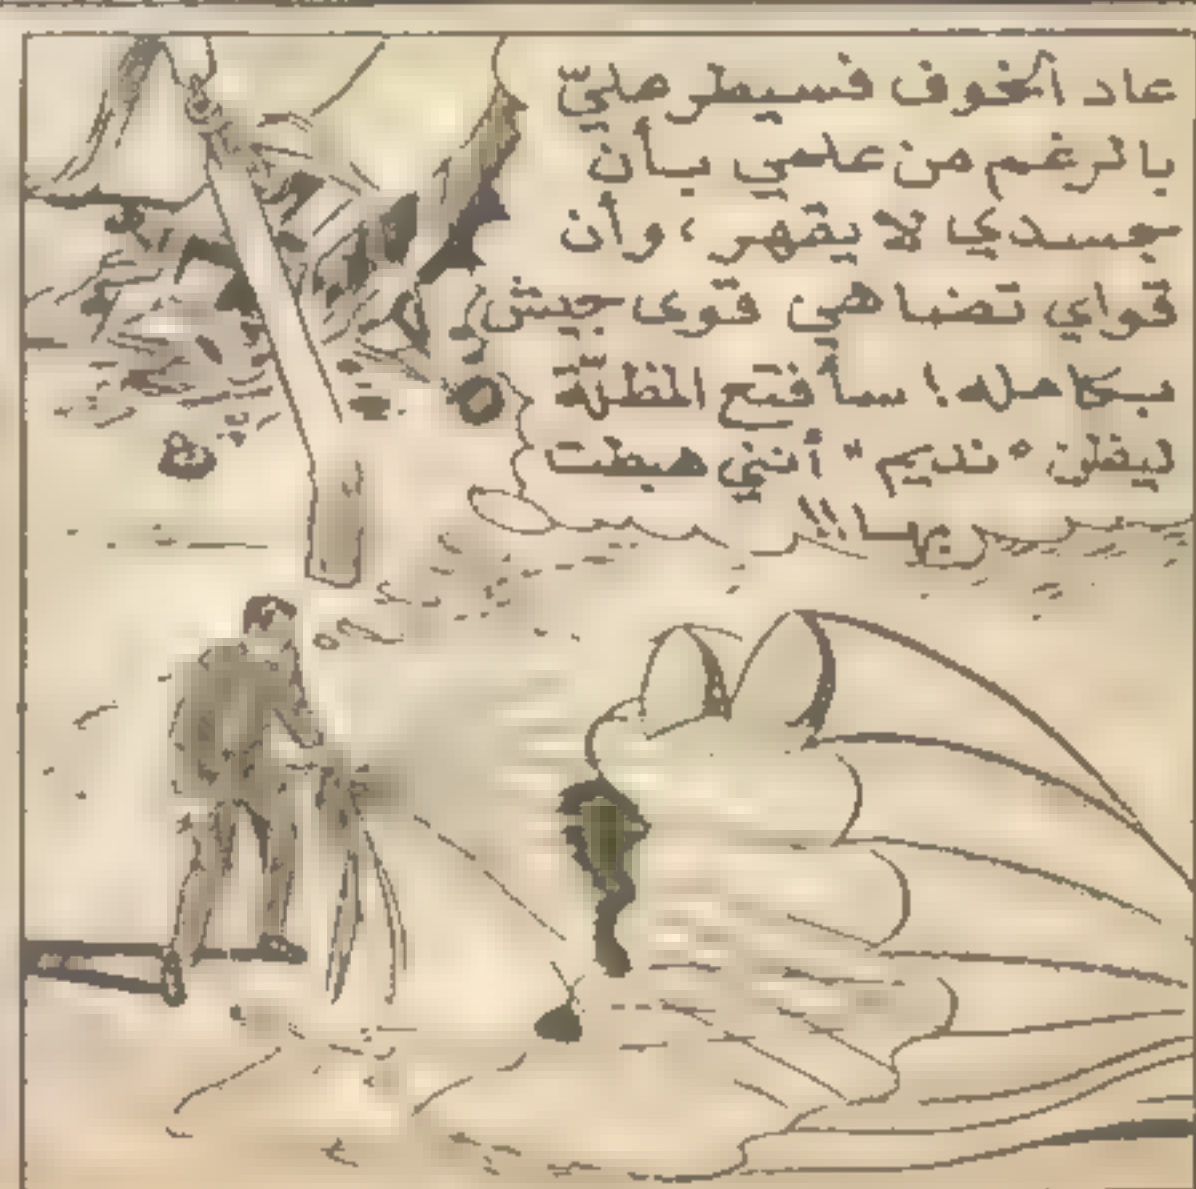 عاد الخوف فسيطر عليّ
بالرغم من علمي بأن
جسدي لا يقهر، وأن
قواي تضاهي قوى جيش
بكامله! سأفتح المظلّة
ليظن "نديم" أنني هبطت
بها!!